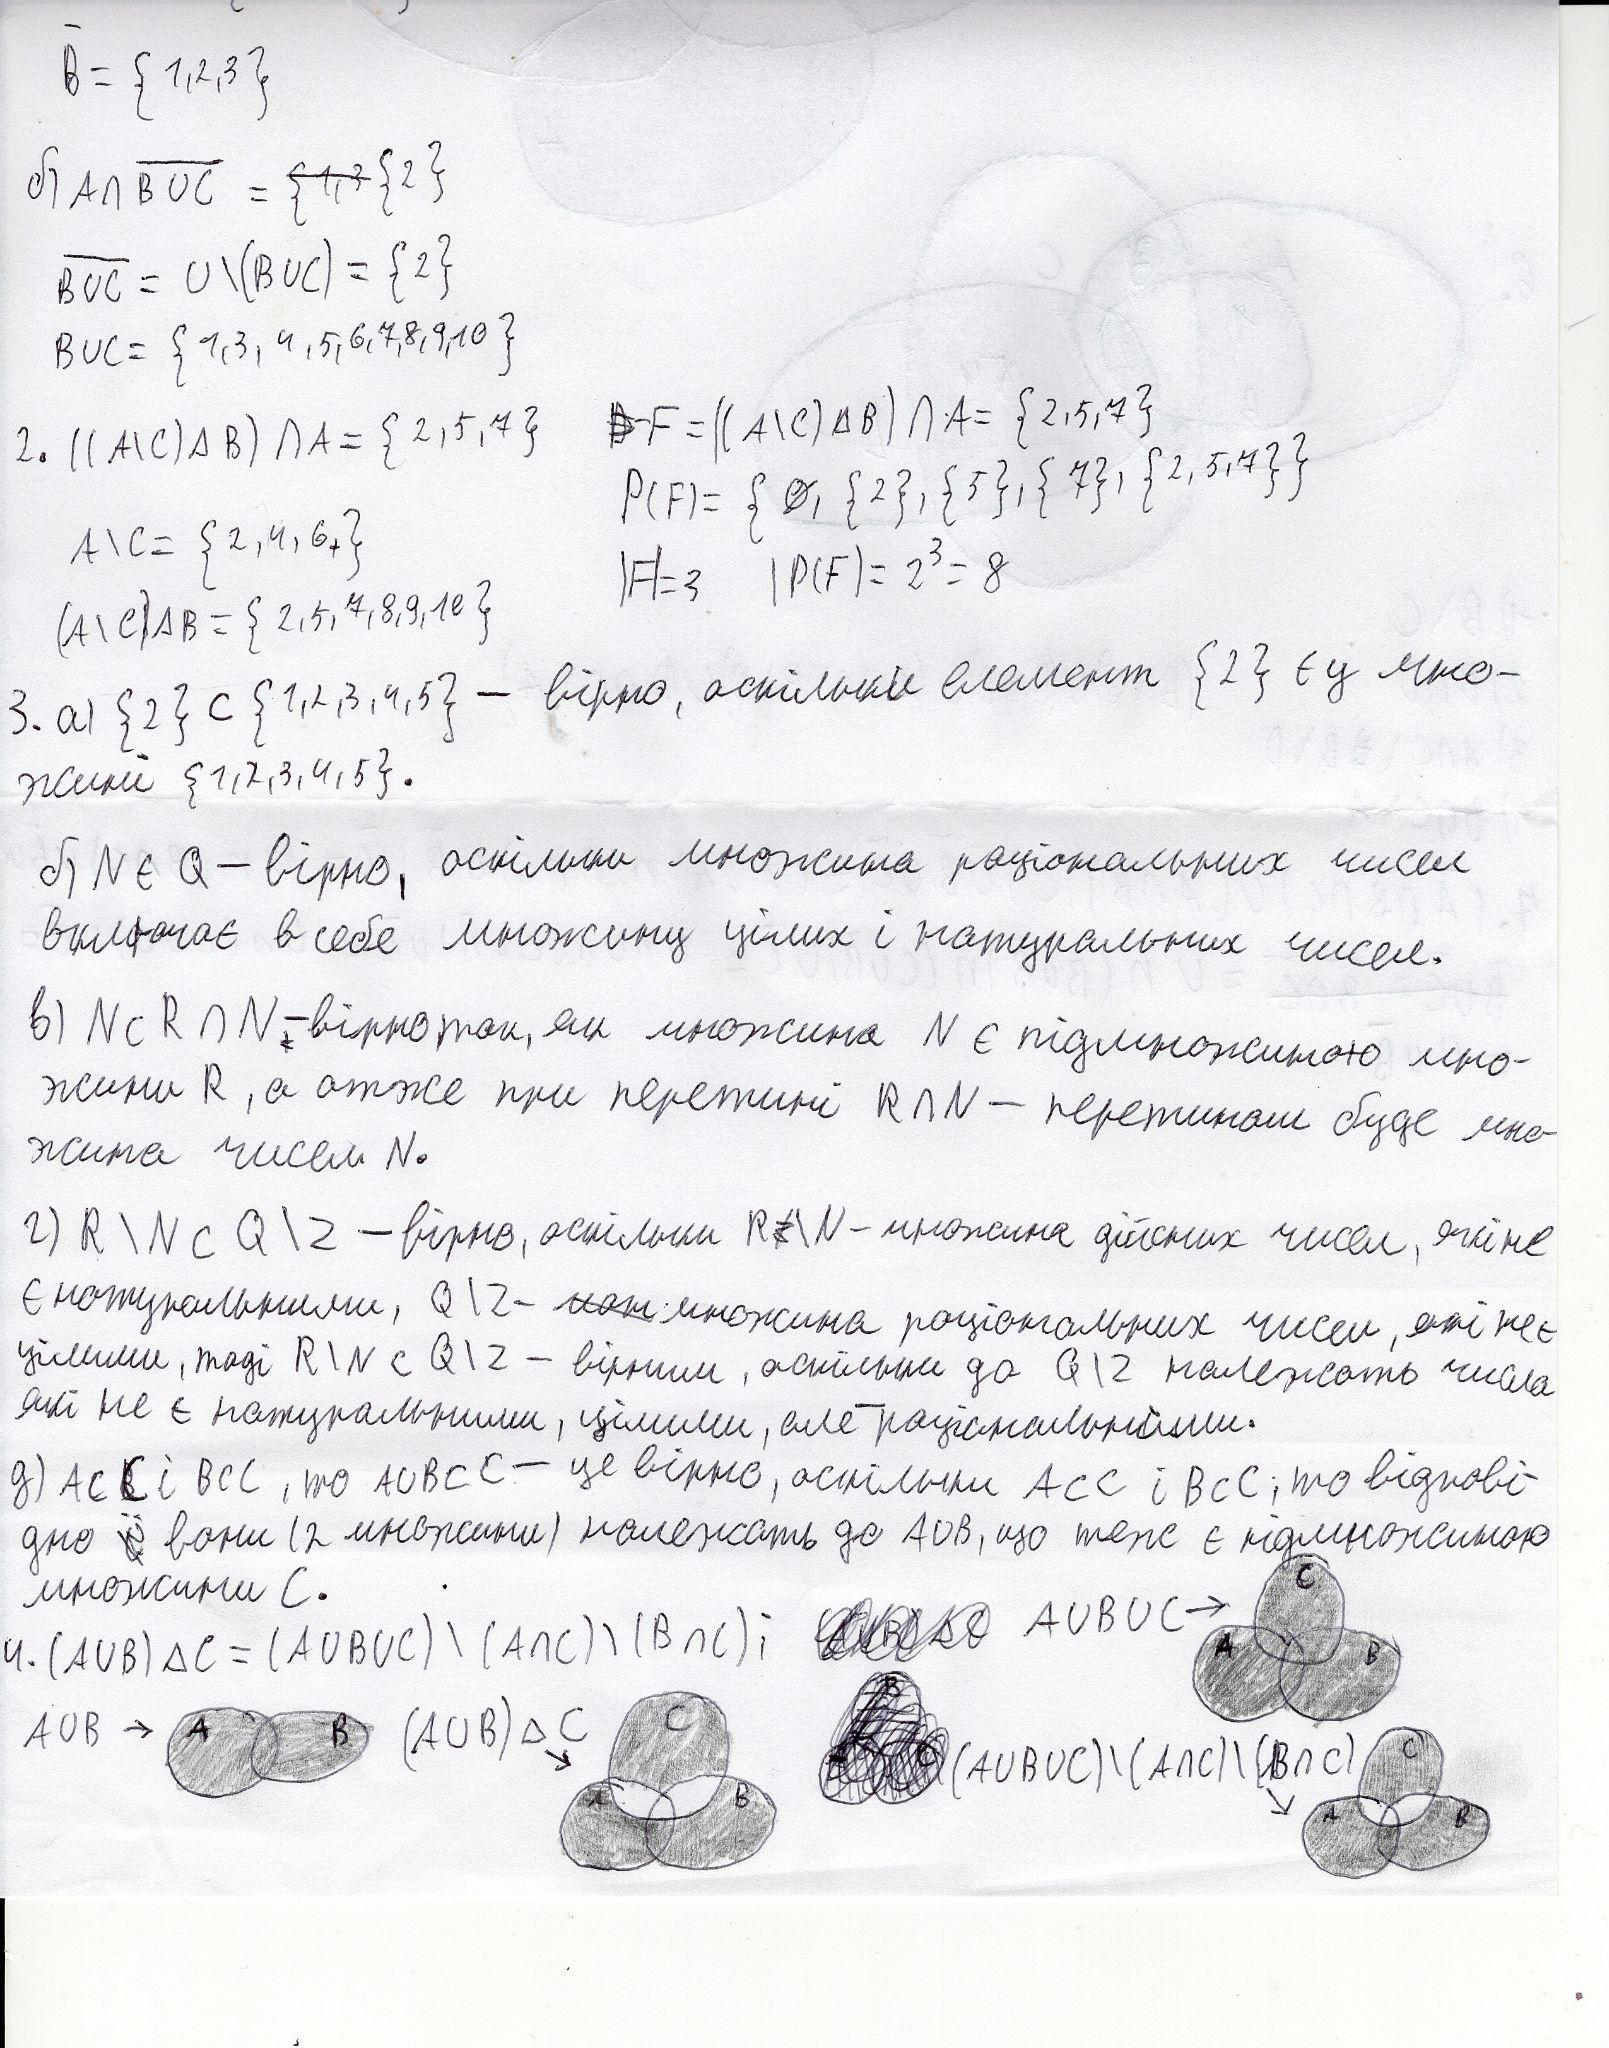 B̅ = {1,2,3}
б) A∩\overline{B∪C} = {2}
\overline{B∪C} = U\(B∪C) = {2}
B∪C = {1,3,4,5,6,7,8,9,10}
2. ((A\C)ΔB)∩A = {2,5,7}
F = ((A\C)ΔB)∩A = {2,5,7}
P(F) = {∅, {2}, {5}, {7}, {2,5,7}}
A\C = {2,4,6}
|F|=3 |P(F)|= 2³ = 8
(A\C)ΔB = {2,5,7,8,9,10}
3. а) {2} ⊂ {1,2,3,4,5} — вірно, оскільки елемент {2} є у мно-
жині {1,2,3,4,5}.
б) N ∈ Q — вірно, оскільки множина раціональних чисел
включає в себе множину цілих і натуральних чисел.
в) N ⊂ R∩N — вірно так, як множина N є підмножиною мно-
жини R, а отже при перетині R∩N — перетином буде мно-
жина чисел N.
г) R\N ⊂ Q\Z — вірно, оскільки R\N — множина дійсних чисел, які не
є натуральними, Q\Z — множина раціональних чисел, які не є
цілими, тоді R\N ⊂ Q\Z — вірним, оскільки до Q\Z належать числа
які не є натуральними, цілими, але раціональними.
д) A⊂C і B⊂C, то A∪B⊂C — це вірно, оскільки A⊂C і B⊂C, то відпові-
дно вони (2 множини) належать до A∪B, що теж є підмножиною
множини C.
4. (A∪B)ΔC = (A∪B∪C)\(A∩C)\(B∩C);
A∪B∪C →
C
A B
A∪B →
A B
(A∪B)ΔC
C
A B
(A∪B∪C)\(A∩C)\(B∩C)
C
A B